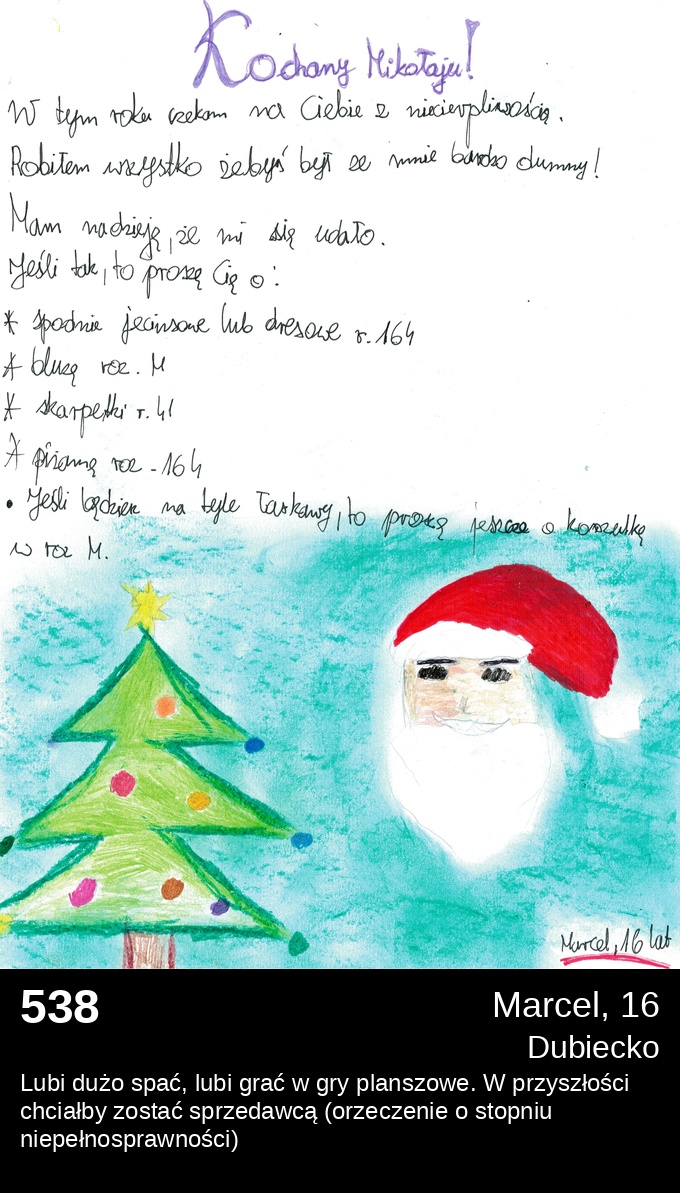 Kochany Mikołaju!
W tym roku czekam na Ciebie z niecierpliwością.
Robiłem wszystko żebyś był ze mnie bardzo dumny!
Mam nadzieję, że mi się udało.
Jeśli tak, to proszę Cię o:
* spodnie jeansowe lub dresowe r. 164
* bluzę roz. M
* skarpetki r. 41
* piżamę roz - 164
• Jeśli będziesz na tyle łaskawy, to proszę jeszcze o koszulkę
w roz M.
Marcel, 16 lat
538
Marcel, 16
Dubiecko
Lubi dużo spać, lubi grać w gry planszowe. W przyszłości
chciałby zostać sprzedawcą (orzeczenie o stopniu
niepełnosprawności)